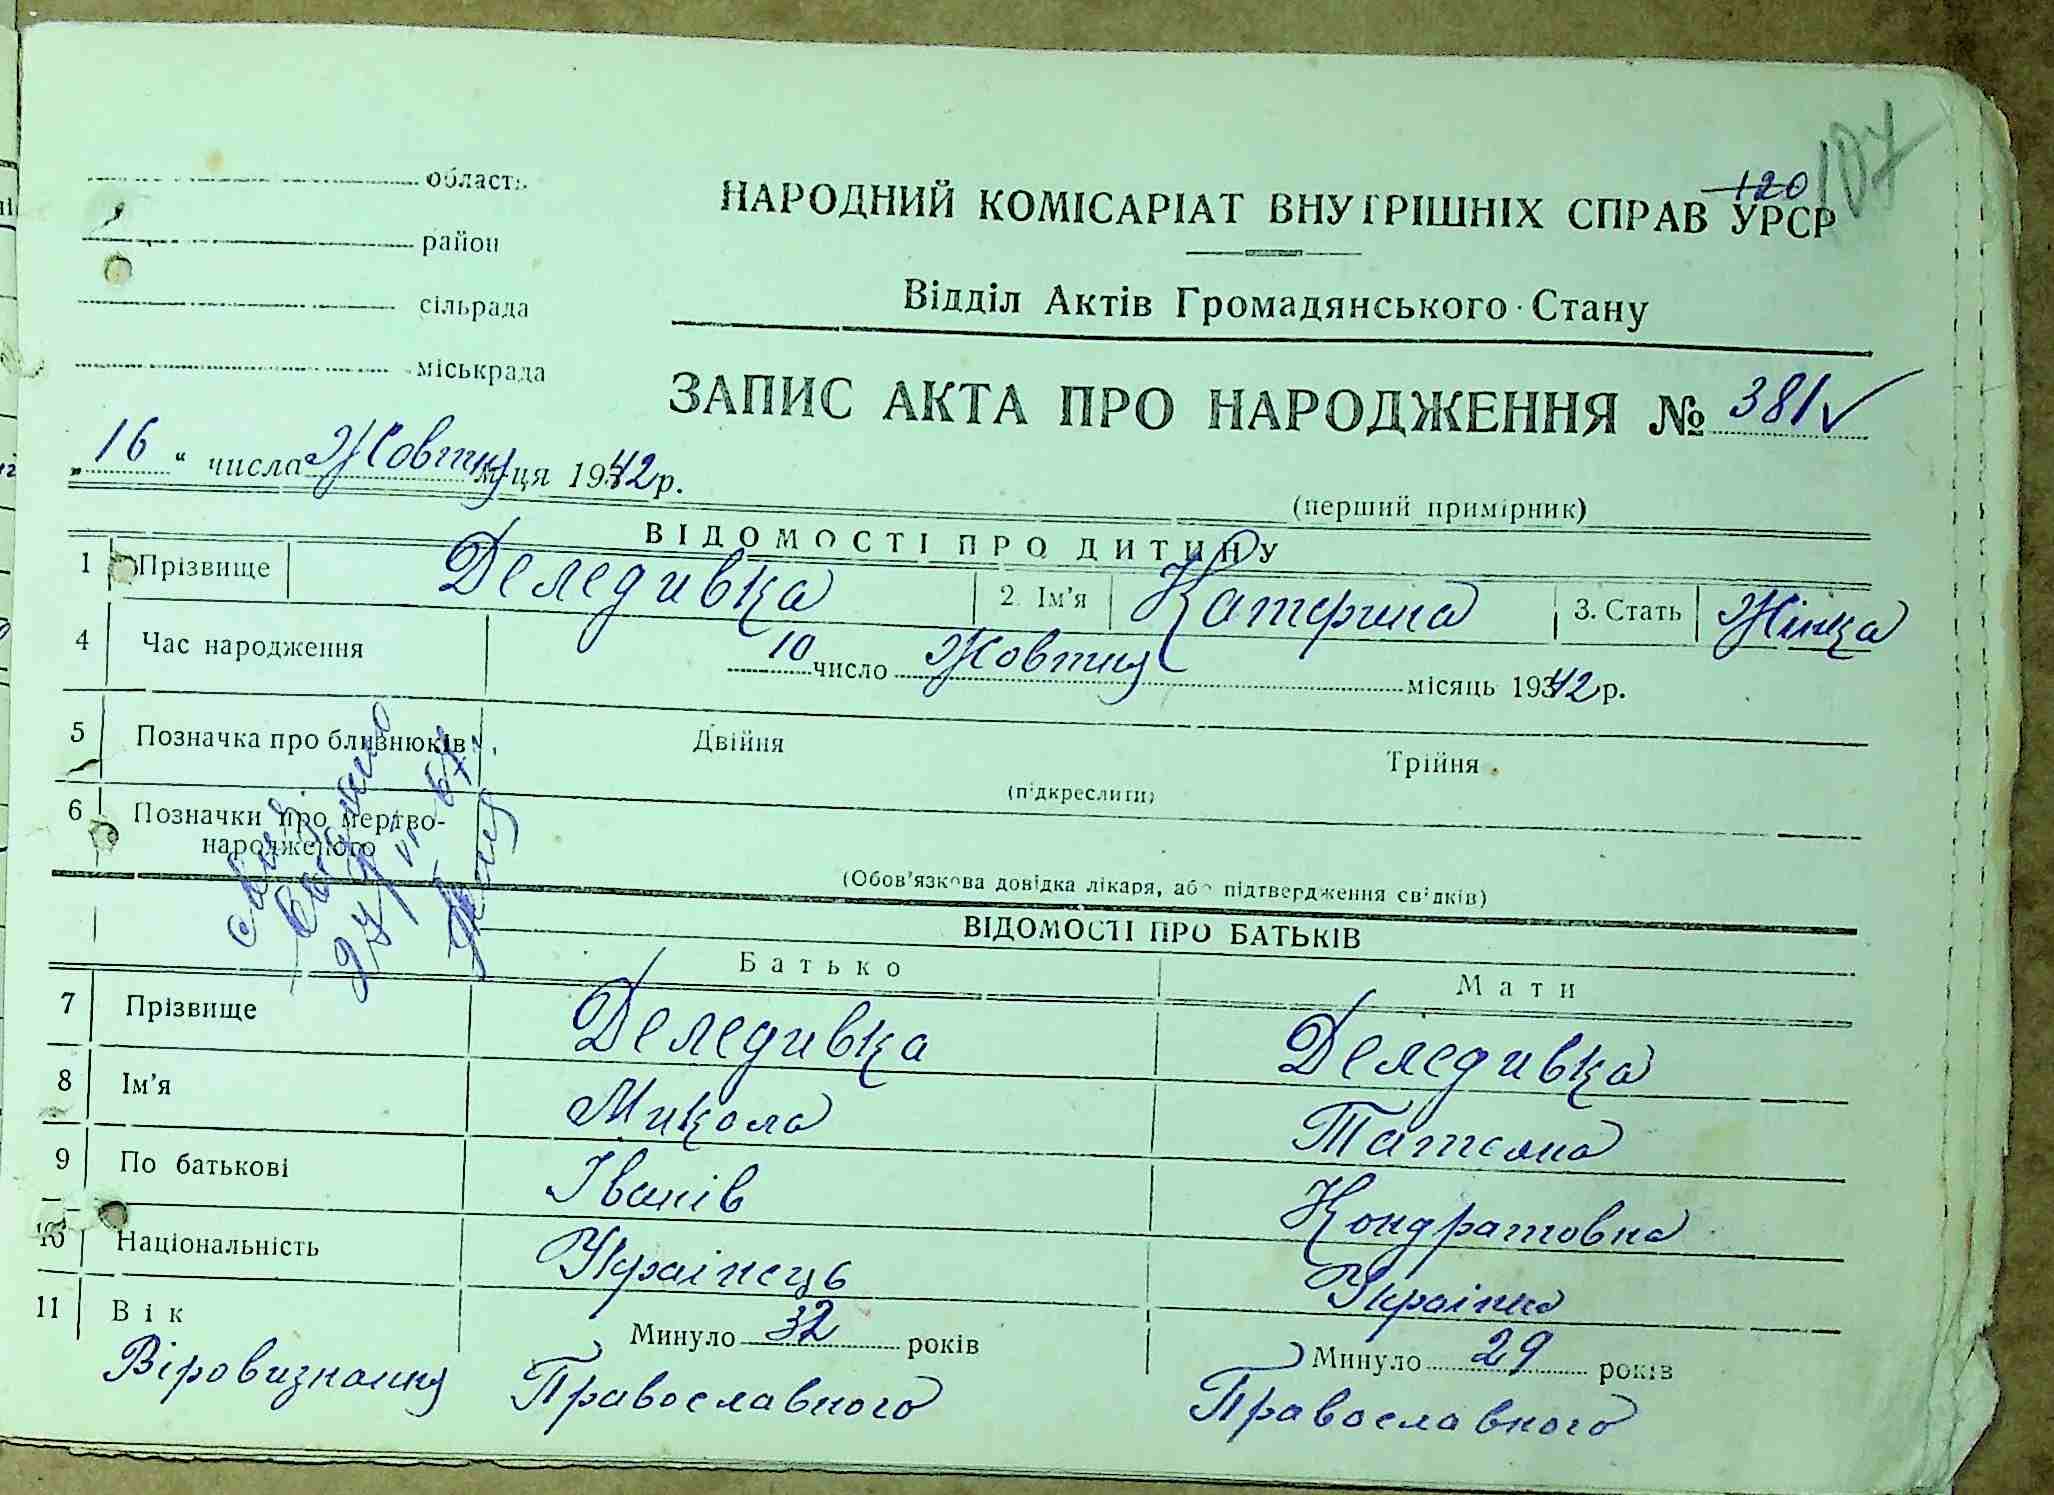 120 107
область
район
сільрада
міськрада
НАРОДНИЙ КОМІСАРІАТ ВНУТРІШНІХ СПРАВ УРСР
Відділ Актів Громадянського Стану
ЗАПИС АКТА ПРО НАРОДЖЕННЯ № 381
„16“ числа Жовтня м-ця 1942 р.
(перший примірник)
ВІДОМОСТІ ПРО ДИТИНУ
1 Прізвище Деледивка 2. Ім'я Катерина 3. Стать Жінка
4 Час народження 10 число Жовтня місяць 1942 р.
5 Позначка про близнюків Двійня Трійня
(підкреслити)
6 Позначки про мертво-
народженого
(Обов'язкова довідка лікаря, або підтвердження свідків)
27/VI 67
ВІДОМОСТІ ПРО БАТЬКІВ
Батько Мати
7 Прізвище Деледивка Деледивка
8 Ім'я Микола Татяна
9 По батькові Іванів Кондратовна
10 Національність Українець Українка
11 Вік Минуло 32 років Минуло 29 років
Віровизнання Православного Православного